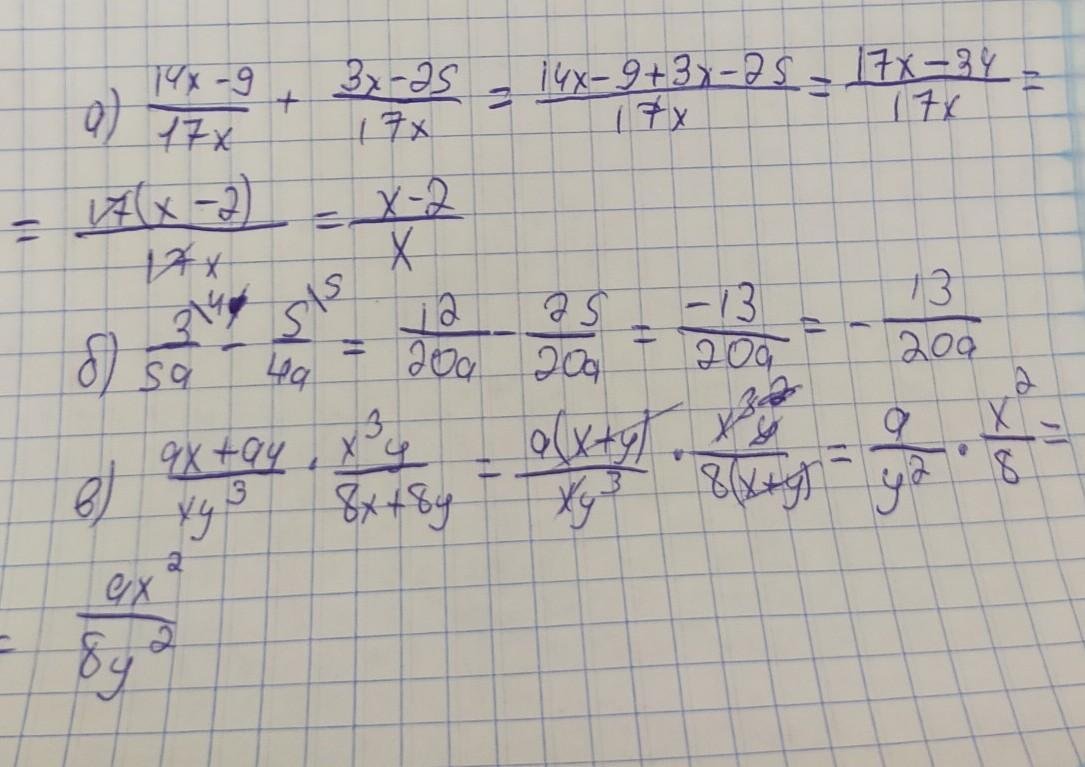 а) (14x-9)/(17x) + (3x-25)/(17x) = (14x-9+3x-25)/(17x) = (17x-34)/(17x) =
= (17(x-2))/(17x) = (x-2)/x
б) 3\4/(5a) - 5\5/(4a) = 12/(20a) - 25/(20a) = (-13)/(20a) = - 13/(20a)
в) (ax+ay)/(xy³) · (x³y)/(8x+8y) = (a(x+y))/(xy³) · (x³y)/(8(x+y)) = a/y² · x²/8 =
= (ax²)/(8y²)